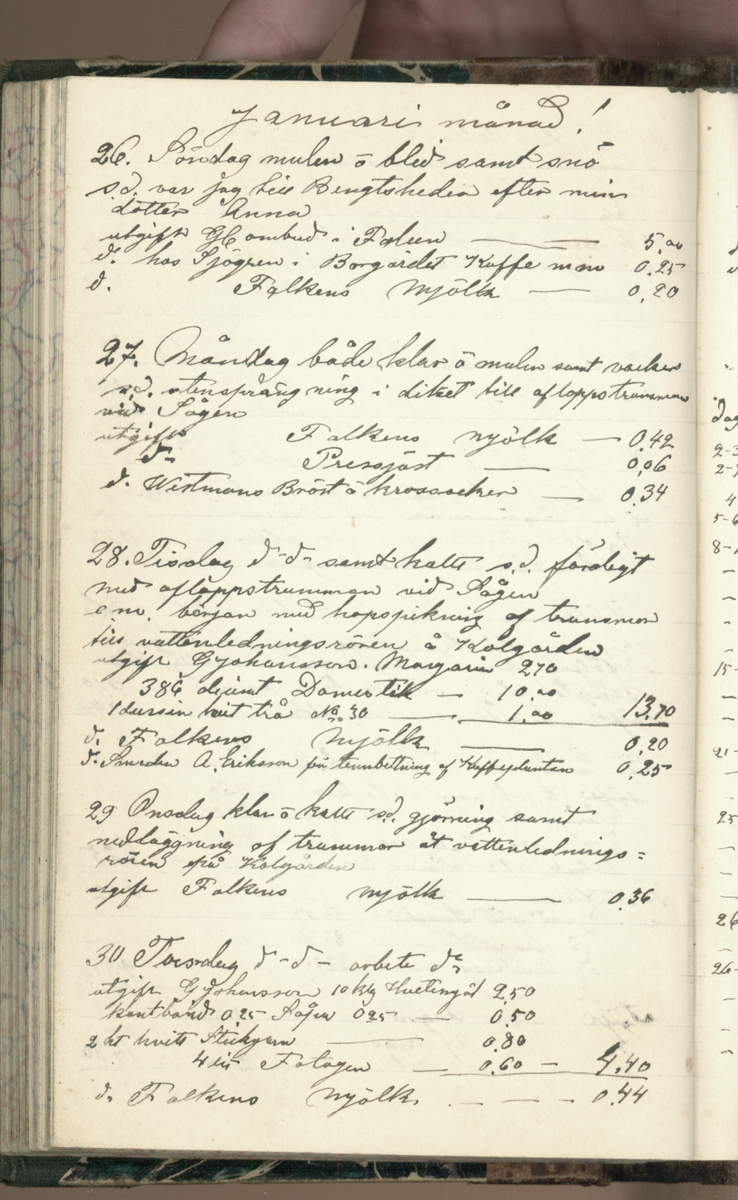 Januari månad!
26. Söndag mulen ö blid samt snö
s.d. var jag till Bengtsheden efter min
dotter Anna
utgift GH ombud i Falun — 5.00
d. hos Sjögren i Borgärdet Kaffe m m 0,25
d. Falkens mjölk — 0,20
27. Måndag både klar ö mulen samt vacker
s.d. stensprängning i diket till afloppstrumman
vid Sågen
utgift Falkens mjölk — 0,42
d- Pressjäst — 0,06
d. Westmans Bröst ö krossocker — 0,34
28. Tisdag d-d- samt kallt s.d. färdigt
med afloppstrumman vid Sågen
em. början med hopspikning af trummor
till vattenledningsrören å Kolgården
utgift G Johansson. Margarin 2,70
38 6 Domestik — 10.00
1 dussin hvit trå No 30 — 1.00 13,70
d. Falkens mjölk — 0,20
d. Smeden A. Eriksson för
0,25
29 Onsdag klar ö kallt s.d. gjörning samt
nedläggning af trummor åt vattenlednings=
rören på Kolgården
utgift Falkens mjölk — 0,36
30 Torsdag d-d- arbete d-
utgift G Johansson 10 kg Hvetemjöl 2,50
kantband 0,25 Sågen 0,25 — 0,50
2 ht hvitt Stickgarn — 0,80
4 — 0,60 — 4,40
d. Falkens mjölk. — — — 0,44